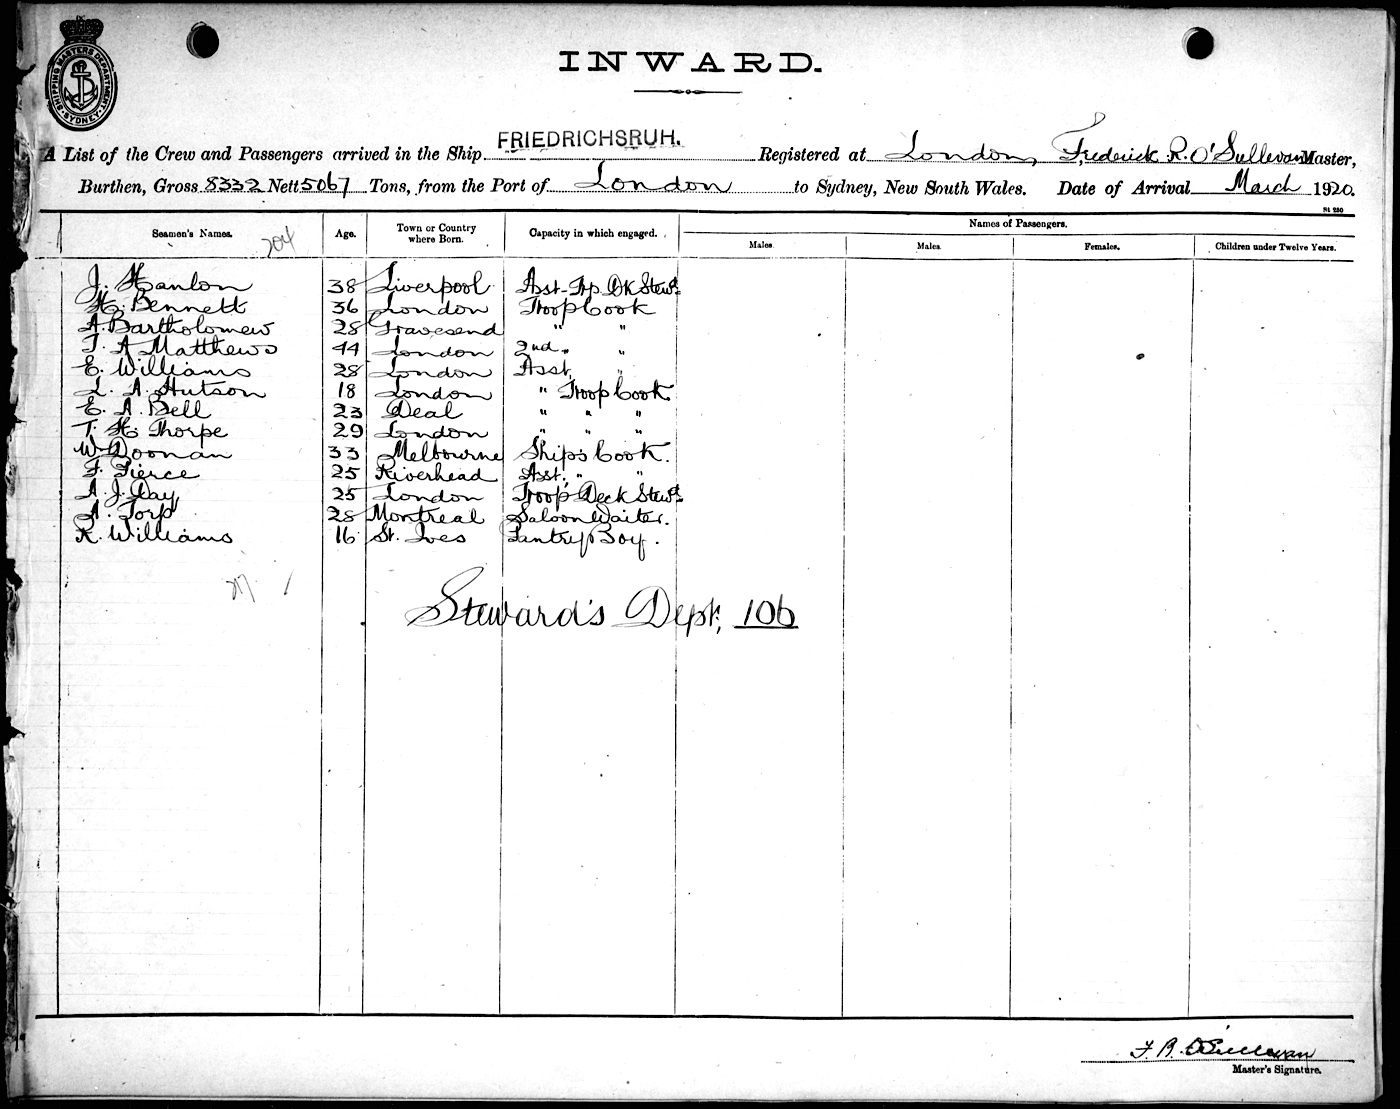 SHIPPING MASTERS DEPARTMENT
SYDNEY
INWARD.
A List of the Crew and Passengers arrived in the Ship FRIEDRICHSRUH. Registered at London, Frederick R. O'Sullivan Master,
Burthen, Gross 8332 Nett 5067 Tons, from the Port of London to Sydney, New South Wales. Date of Arrival March 1920.
St 230
Seamen's Names. 204 Age. Town or Country where Born. Capacity in which engaged. Names of Passengers.
Males. Males. Females. Children under Twelve Years.
J. Hanlon 38 Liverpool Asst. Trp Dk Stewd.
H. Bennett 36 London Troop Cook
A. Bartholomew 28 Gravesend " "
T. A. Matthews 44 London 2nd " "
E. Williams 28 London Asst. "
L. A. Hutson 18 London " Troop Cook.
E. A. Bell 23 Deal " " "
T. H. Thorpe 29 London " " "
W. Doonan 33 Melbourne Ship's Cook.
F. Pierce 25 Riverhead Asst. " "
A. J. Day 25 London Troop Deck Stewd.
A. Torp 28 Montreal Saloon Waiter.
R. Williams 16 St. Ives Pantry Boy.
217
Steward's Dept, 106
F. R. O'Sullivan
Master's Signature.